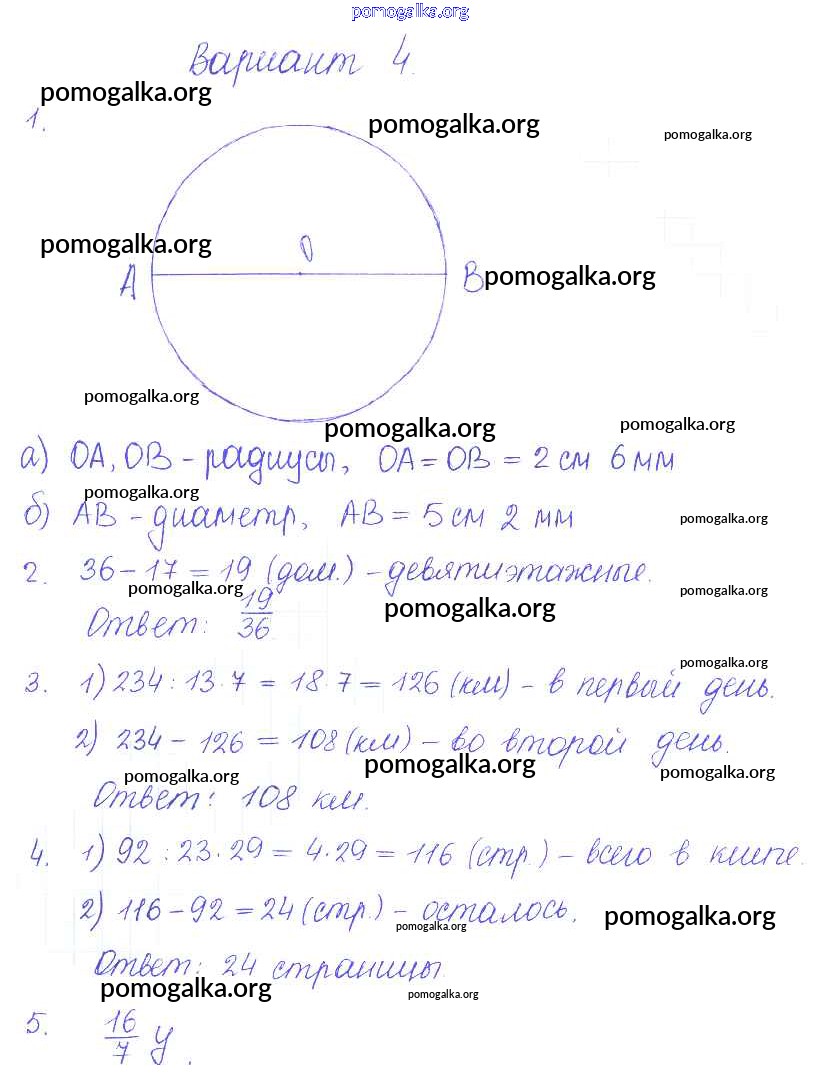 pomogalka.org
Вариант 4.
pomogalka.org
1.
pomogalka.org
pomogalka.org
pomogalka.org
O
A
B
pomogalka.org
pomogalka.org
pomogalka.org
pomogalka.org
а) OA, OB - радиусы, OA = OB = 2 см 6 мм
pomogalka.org
б) AB - диаметр, AB = 5 см 2 мм
pomogalka.org
2. 36 - 17 = 19 (дом.) - девятиэтажные.
pomogalka.org
pomogalka.org
pomogalka.org
Ответ: 19/36
pomogalka.org
3. 1) 234 : 13 · 7 = 18 · 7 = 126 (км) - в первый день.
2) 234 - 126 = 108 (км) - во второй день.
pomogalka.org
pomogalka.org
pomogalka.org
Ответ: 108 км.
4. 1) 92 : 23 · 29 = 4 · 29 = 116 (стр.) - всего в книге.
2) 116 - 92 = 24 (стр.) - осталось.
pomogalka.org
pomogalka.org
Ответ: 24 страницы.
pomogalka.org
pomogalka.org
5. 16/7 y.